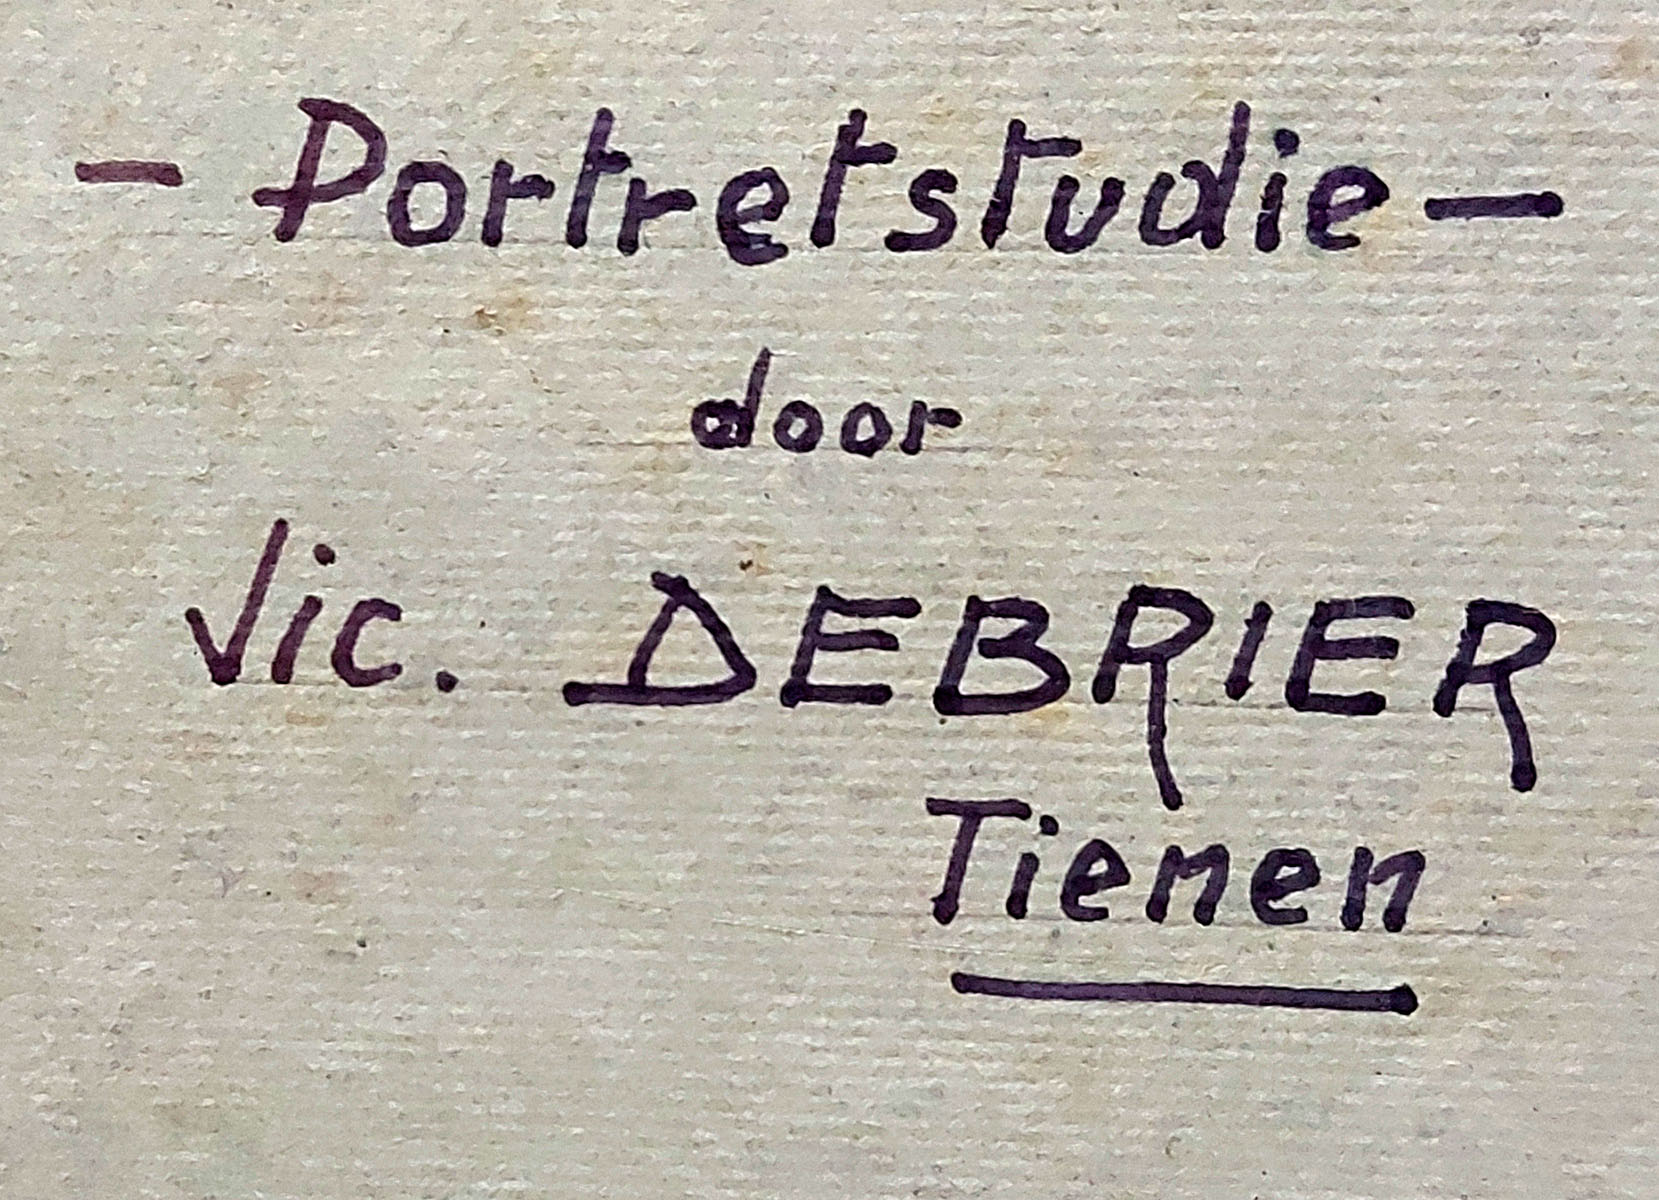 - Portretstudie -
door
Vic. DEBRIER
Tienen